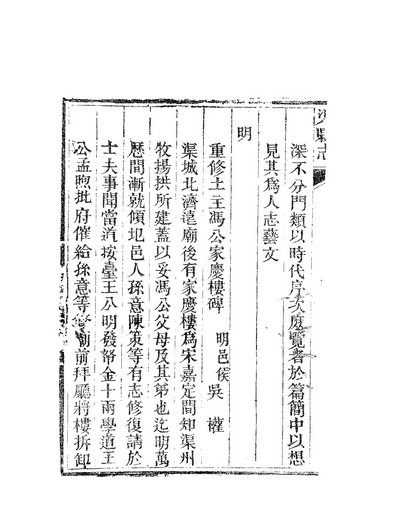 縣志
深不分門類以時代序次庶覽者於篇簡中以想
見其為人志藝文
明
重修土主馮公家慶樓碑 明邑侯 吳權
渠城北濟遠廟後有家慶樓為宋嘉定間知渠州
牧揚拱所建蓋以妥馮公父母及其弟也迄明萬
曆間漸就傾圯邑人孫意陳策等有志修復請於
士夫事聞當道按臺王公明發帑金十兩學道王
公孟煦批府催給孫意等修廟前拜廳將樓拆卸